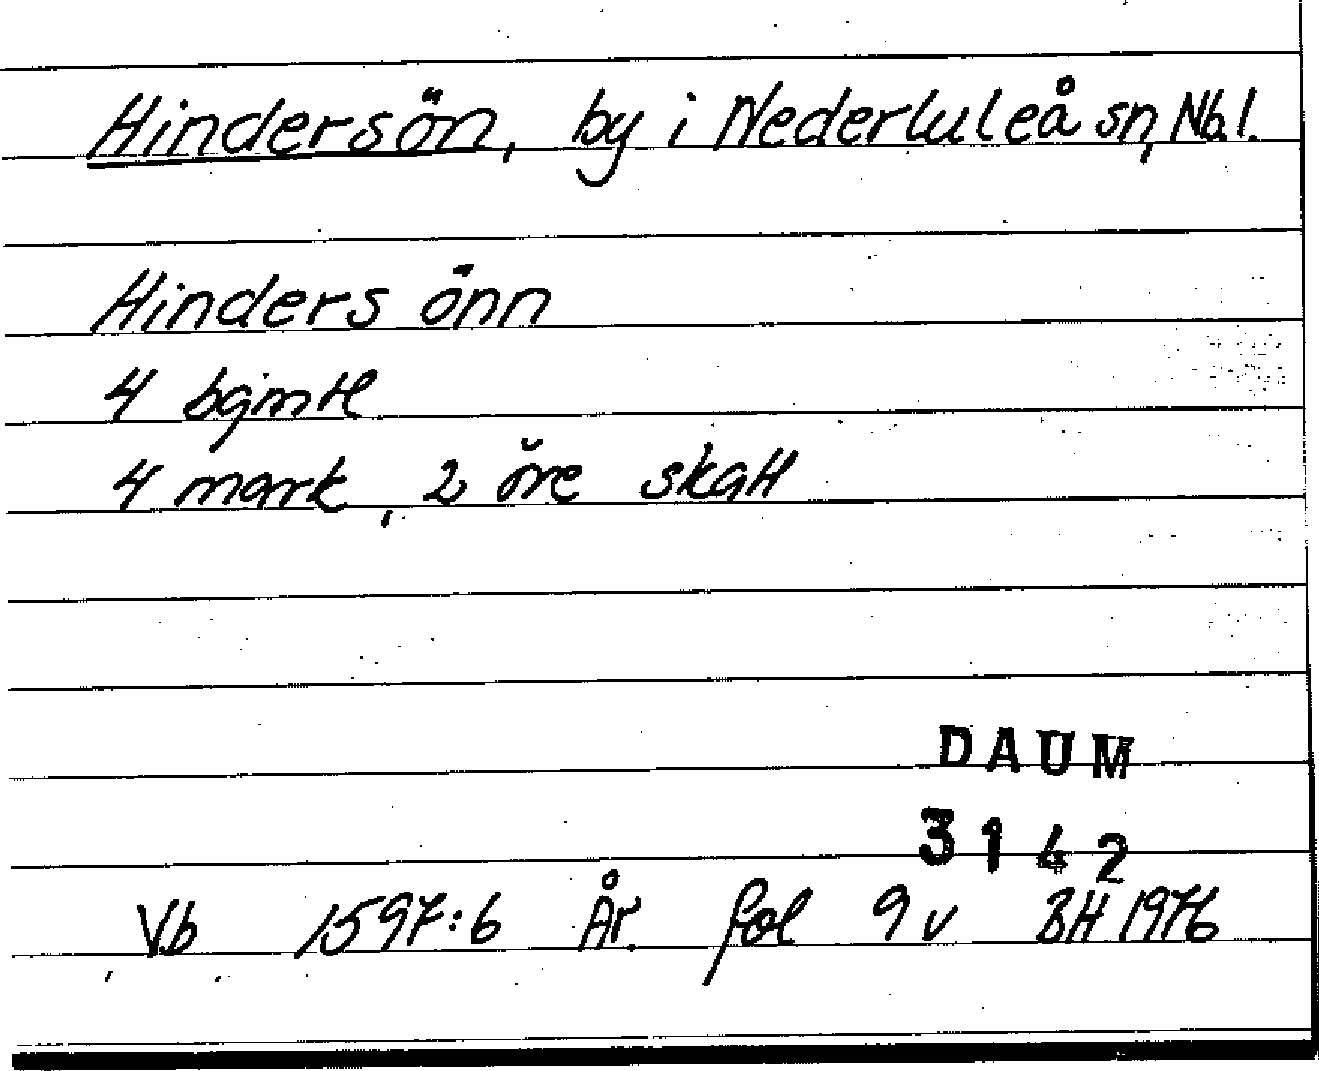 Hindersön, by i Nederluleå sn, Nb.l.
Hinders önn
4 bgmtl
4 mark, 2 öre skatt
DAUM
3142
Vb 1597:6 År. fol 9v BH 1976